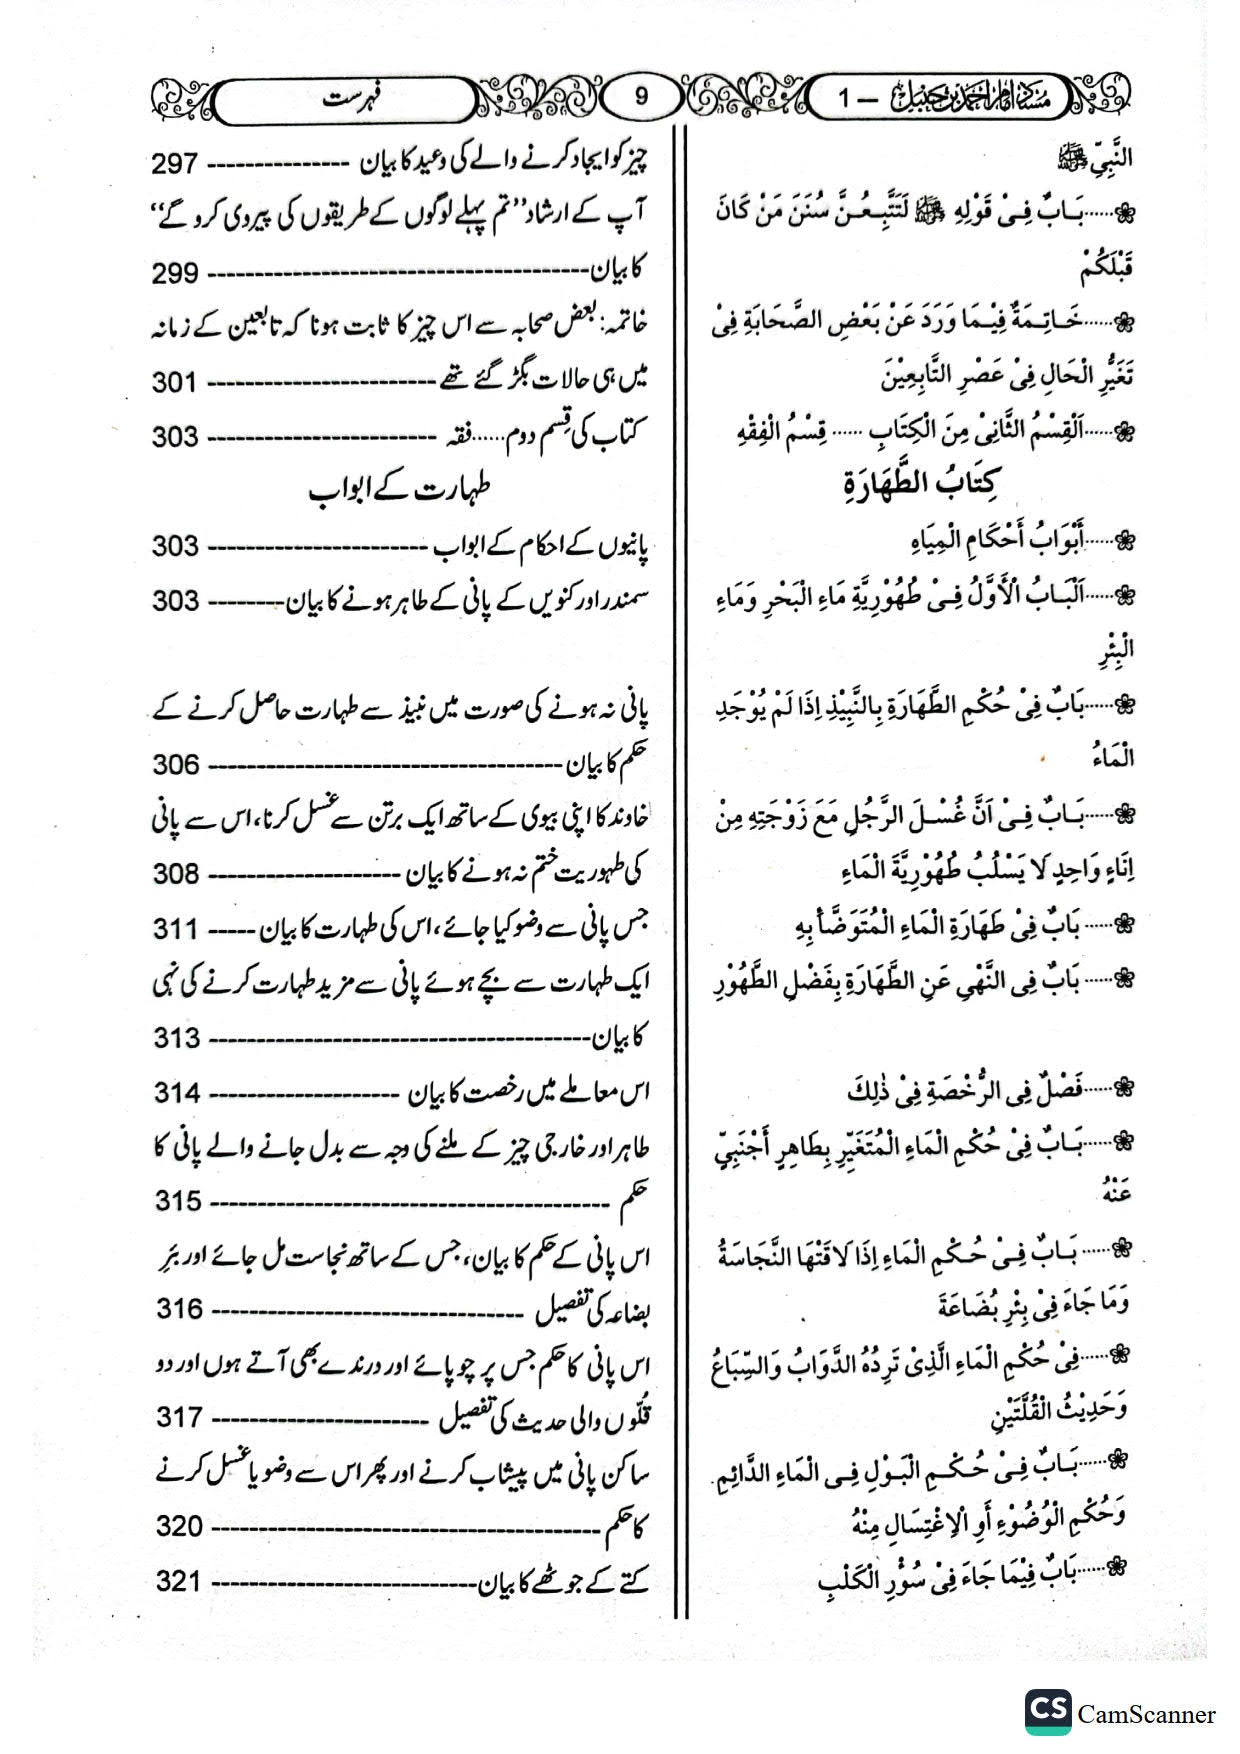 مسند امام احمد بن حنبل — 1
9
فہرست
النَّبِيِّ ﷺ
❀......بَـابٌ فِيْ قَوْلِهِ ﷺ لَتَتَّبِـعُـنَّ سُنَنَ مَنْ كَانَ
قَبْلَكُمْ
❀......خَـاتِـمَةٌ فِيْـمَا وَرَدَ عَنْ بَعْضِ الصَّحَابَةِ فِيْ
تَغَيُّرِ الْحَالِ فِيْ عَصْرِ التَّابِعِيْنَ
❀......اَلْقِسْمُ الثَّانِيْ مِنَ الْكِتَابِ ...... قِسْمُ الْفِقْهِ
كِتَابُ الطَّهَارَةِ
❀......أَبْوَابُ أَحْكَامِ الْمِيَاهِ
❀......اَلْبَـابُ الْأَوَّلُ فِـيْ طُهُوْرِيَّةِ مَاءِ الْبَحْرِ وَمَاءِ
الْبِئْرِ
❀......بَابٌ فِيْ حُكْمِ الطَّهَارَةِ بِالنَّبِيْذِ اِذَا لَمْ يُوْجَدِ
الْمَاءُ
❀......بَـابٌ فِـيْ اَنَّ غُسْـلَ الرَّجُلِ مَعَ زَوْجَتِهِ مِنْ
اِنَاءٍ وَاحِدٍ لَا يَسْلُبُ طُهُوْرِيَّةَ الْمَاءِ
❀...... بَابٌ فِيْ طَهَارَةِ الْمَاءِ الْمُتَوَضَّأِ بِهِ
❀...... بَابٌ فِى النَّهْيِ عَنِ الطَّهَارَةِ بِفَضْلِ الطَّهُوْرِ
❀......فَصْلٌ فِى الرُّخْصَةِ فِيْ ذٰلِكَ
❀......بَـابٌ فِيْ حُكْمِ الْمَاءِ الْمُتَغَيِّرِ بِطَاهِرٍ أَجْنَبِيٍّ
عَنْهُ
❀...... بَـابٌ فِيْ حُـكْمِ الْمَاءِ إِذَا لَاقَتْهَا النَّجَاسَةُ
وَمَا جَاءَ فِيْ بِئْرِ بُضَاعَةَ
❀......فِيْ حُكْمِ الْمَاءِ الَّذِيْ تَرِدُهُ الدَّوَابُ وَالسِّبَاعُ
وَحَدِيْثُ الْقُلَّتَيْنِ
❀......بَـابٌ فِـيْ حُـكْـمِ الْبَـوْلِ فِـى الْـمَاءِ الدَّائِمِ
وَحُكْمِ الْوُضُوْءِ أَوِ الْاِغْتِسَالِ مِنْهُ
❀......بَابٌ فِيْمَا جَاءَ فِيْ سُؤْرِ الْكَلْبِ
چیز کو ایجاد کرنے والے کی وعید کا بیان --------------- 297
آپ کے ارشاد ’’تم پہلے لوگوں کے طریقوں کی پیروی کرو گے‘‘
کا بیان---------------------------------------- 299
خاتمہ: بعض صحابہ سے اس چیز کا ثابت ہونا کہ تابعین کے زمانہ
میں ہی حالات بگڑ گئے تھے------------------------ 301
کتاب کی قِسم دوم......فقہ ------------------------ 303
طہارت کے ابواب
پانیوں کے احکام کے ابواب ----------------------- 303
سمندر اور کنویں کے پانی کے طاہر ہونے کا بیان-------- 303
پانی نہ ہونے کی صورت میں نبیذ سے طہارت حاصل کرنے کے
حکم کا بیان ------------------------------------- 306
خاوند کا اپنی بیوی کے ساتھ ایک برتن سے غسل کرنا، اس سے پانی
کی طہوریت ختم نہ ہونے کا بیان -------------------- 308
جس پانی سے وضو کیا جائے، اس کی طہارت کا بیان ----- 311
ایک طہارت سے بچے ہوئے پانی سے مزید طہارت کرنے کی نہی
کا بیان---------------------------------------- 313
اس معاملے میں رخصت کا بیان -------------------- 314
طاہر اور خارجی چیز کے ملنے کی وجہ سے بدل جانے والے پانی کا
حکم ------------------------------------------ 315
اس پانی کے حکم کا بیان، جس کے ساتھ نجاست مل جائے اور بئرِ
بضاعہ کی تفصیل --------------------------------- 316
اس پانی کا حکم جس پر چوپائے اور درندے بھی آتے ہوں اور دو
قُلّوں والی حدیث کی تفصیل ----------------------- 317
ساکن پانی میں پیشاب کرنے اور پھر اس سے وضو یا غسل کرنے
کا حکم ----------------------------------------- 320
کتے کے جوٹھے کا بیان---------------------------- 321
CS CamScanner